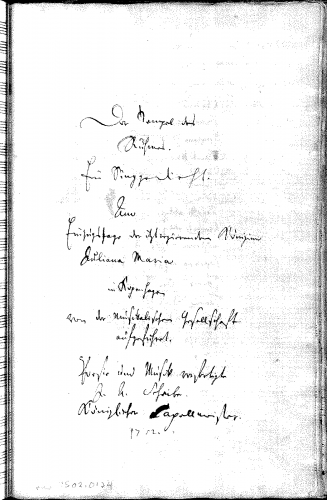 Der Tempel des
Ruhmes.
Ein Singgedicht.
Am
Einzugstage der itztregierenden Königin
Juliana Maria
in Kopenhagen
von der musikalischen Gesellschaft
aufgeführet.
Poesie und Musik verfertigte
J. A. Scheibe.
Königlicher Capellmeister.
1752.